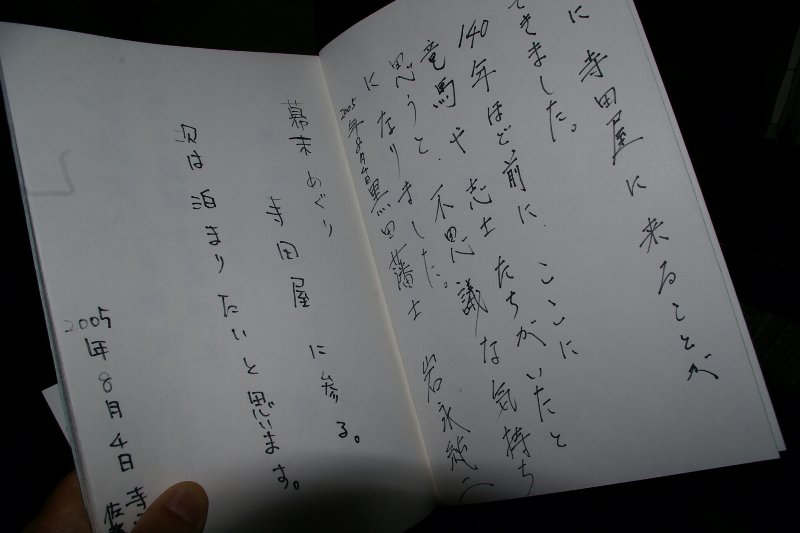 に寺田屋に来ることが
できました。
140年ほど前に、ここに
竜馬や志士たちがいたと
思うと、不思議な気持ち
になりました。
2005年8月4日 黒田藩士 岩永
幕末めぐり
寺田屋に参る。
次は泊まりたいと思います。
2005年8月4日